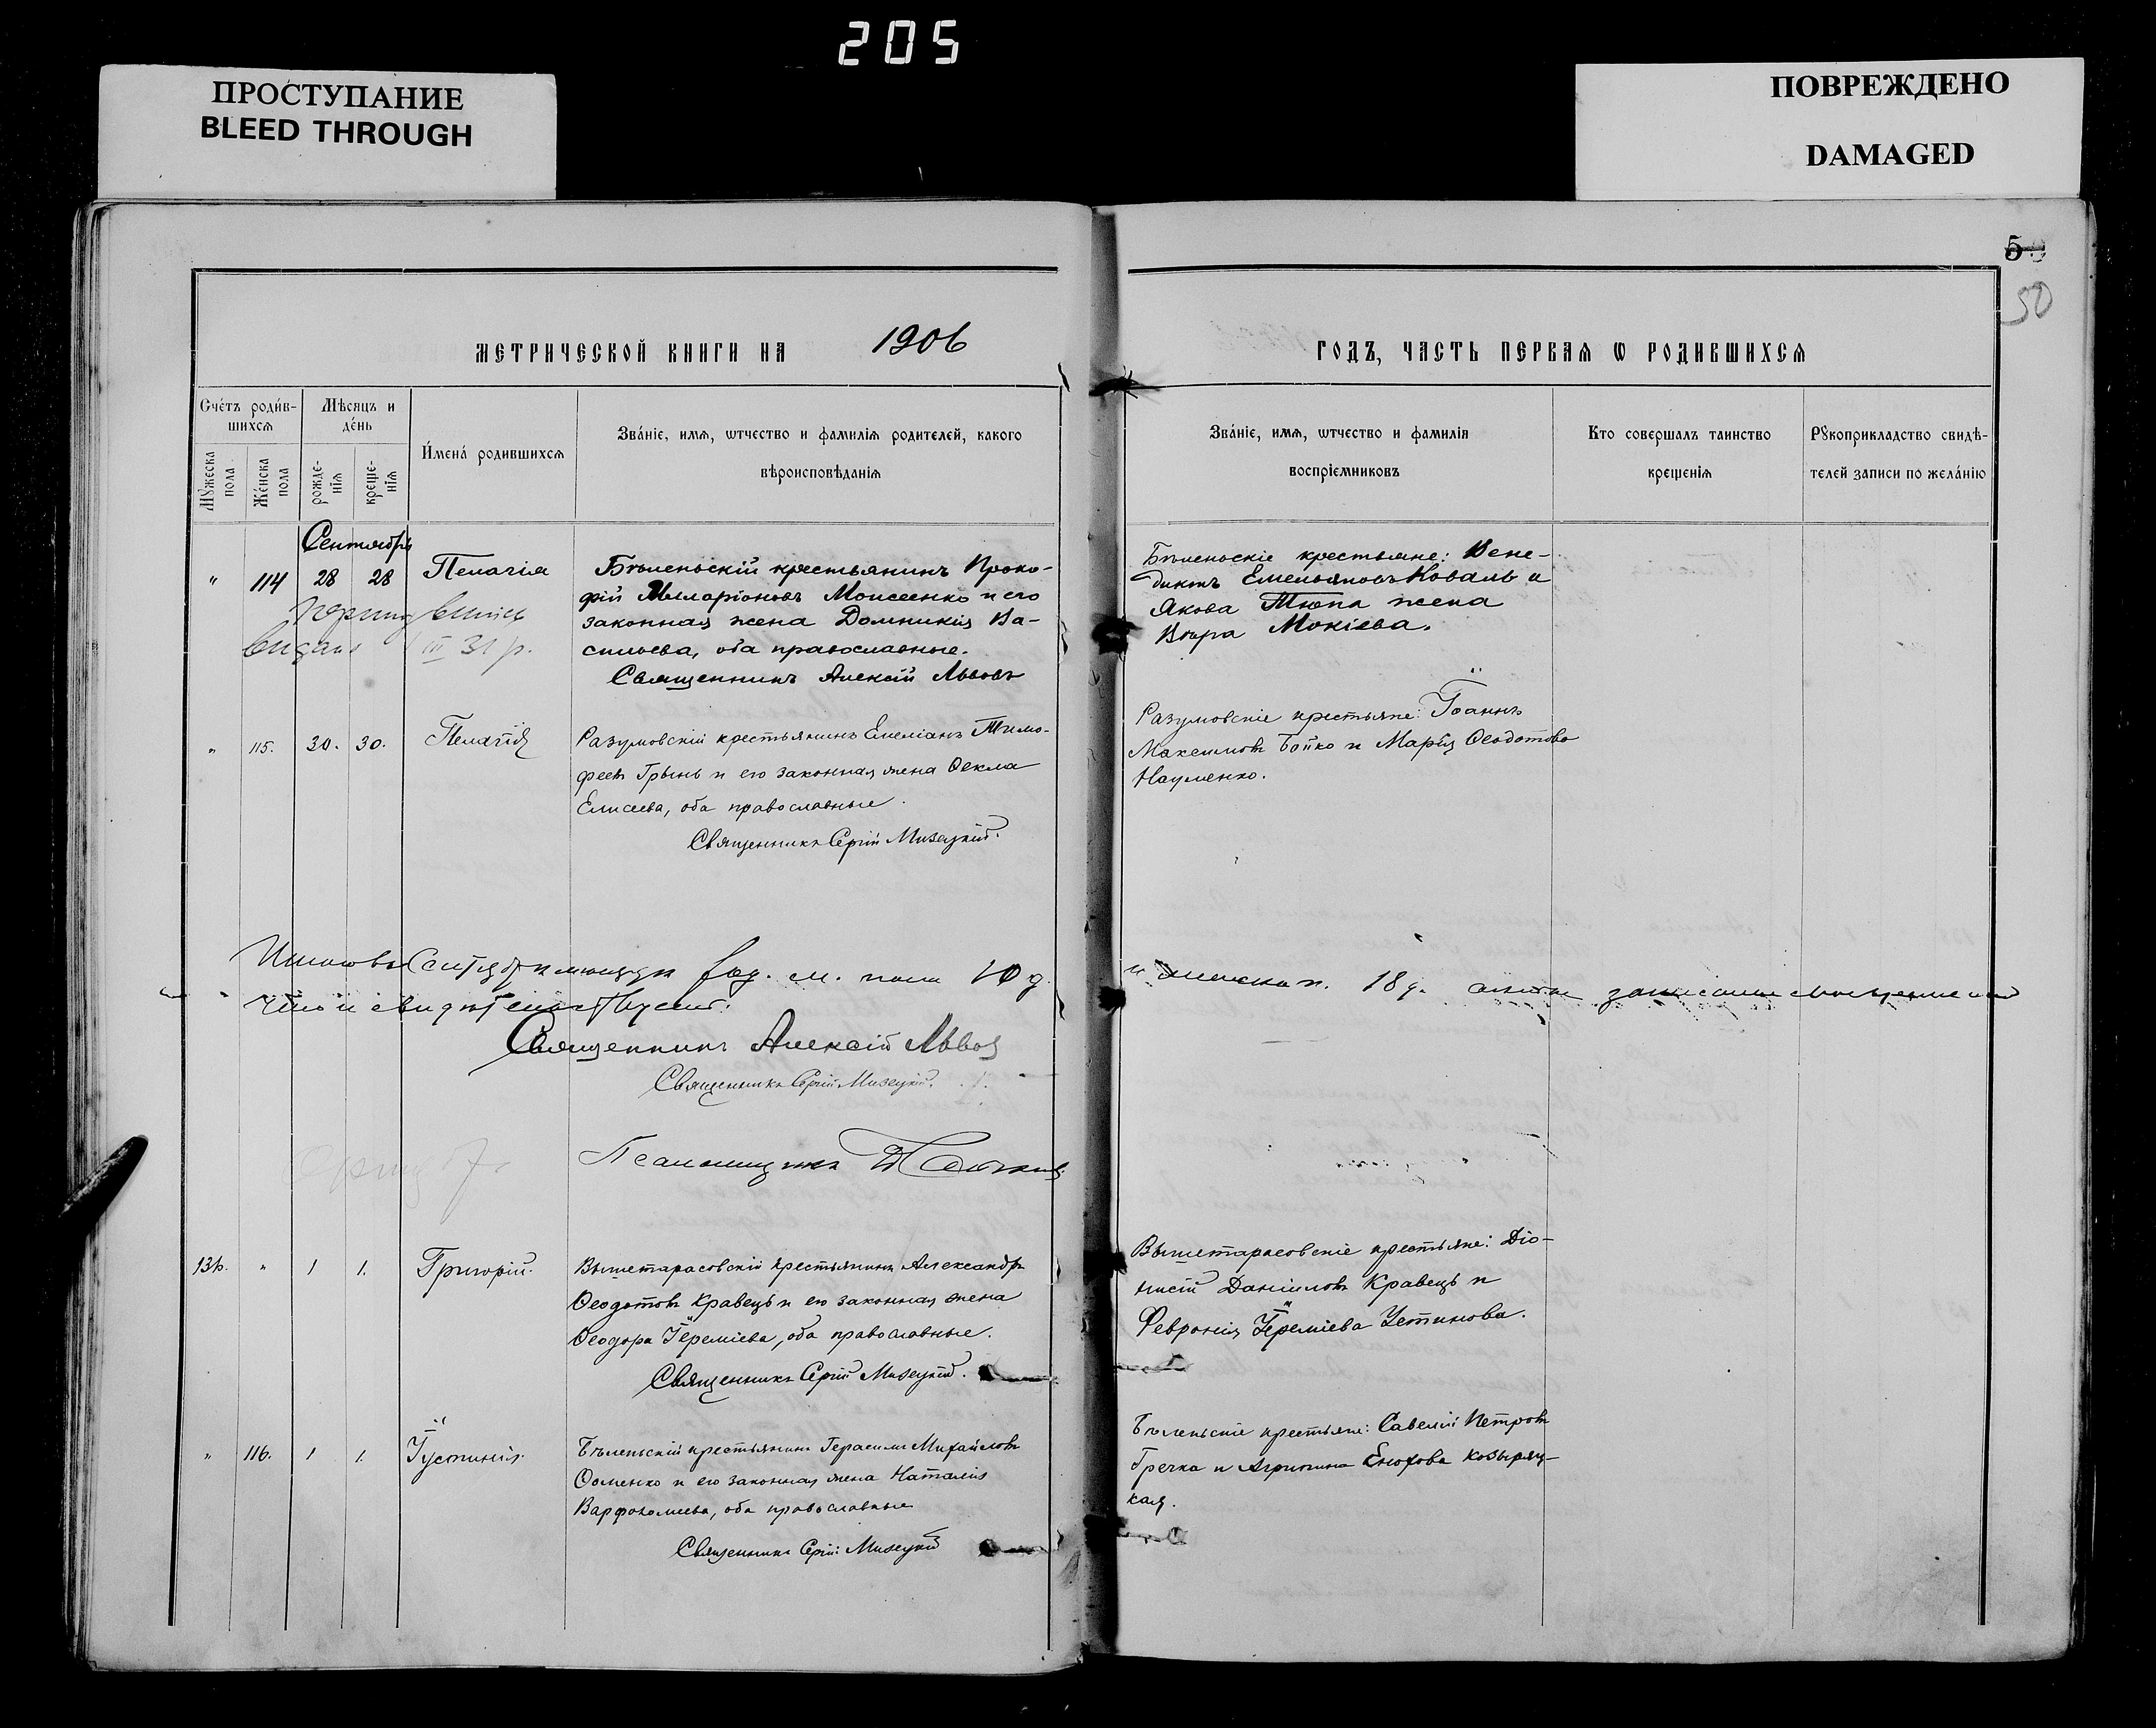 205
ПРОСТУПАНИЕ
BLEED THROUGH
ПОВРЕЖДЕНО
DAMAGED
5
50
МЕТРИЧЕСКОЙ КНИГИ НА 1906
ГОДЪ, ЧАСТЬ ПЕРВАЯ Ѡ РОДИВШИХСЯ
Сче́тъ роди́в-
шихсѧ
Мѣсяцъ и
де́нь
Мꙋжеска
пола
Же́нска
пола
рожде-
нїѧ
креще-
нїѧ
И́мена́ родившихсѧ
Зва́нїе, имѧ, ѿтчество и фамилїѧ родителей, какого
вѣроисповѣданїѧ
Зва́нїе, имѧ, ѿтчество и фамилїѧ
воспрїемниковъ
Кто совершалъ таинство
крещенїѧ
Рꙋкоприкладство свидѣ-
телей записи по жела́нїю
Сентябрь
" 114 28 28 Пелагія
Бѣленьскій крестьянинъ Проко-
фій Илларіоновъ Моисеенко и его
законная жена Домникія Ва-
сильева, оба православные.
Священникъ Алексій Львовъ
III 31 р.
Бѣленьскіе крестьяне: Вене-
диктъ Емельяновъ Коваль и
Якова Тюпа жена
Вѣра Мокіева.
" 115. 30. 30. Пелагія
Разумовскій крестьянинъ Емеліанъ Тимо-
феевъ Грынь и его законная жена Ѳекла
Елисеева, оба православные.
Священникъ Сергій Мизецкій.
Разумовскіе крестьяне: Іоаннъ
Максимовъ Бойко и Марія Ѳеодотова
Науменко.
м. пола 10 д
18 д.
Священникъ Алексій Львовъ
Священникъ Сергій Мизецкій.
Псаломщикъ
136. " 1 1. Григорій.
Вышетарасовскій крестьянинъ Александръ
Ѳеодотовъ Кравецъ и его законная жена
Ѳеодора Іереміева, оба православные.
Священникъ Сергій Мизецкій.
Вышетарасовскіе крестьяне: Діо-
нисій Даніиловъ Кравецъ и
Февронія Іереміева Устинова.
" 116. 1 1. Іустинія.
Бѣленьскій крестьянинъ Герасимъ Михайловъ
и его законная жена Наталія
Варфоломеева, оба православные
Священникъ Сергій Мизецкій
Бѣленьскіе крестьяне: Савелій Петровъ
Гречка и Агрипина Енохова Козыряц-
кая.